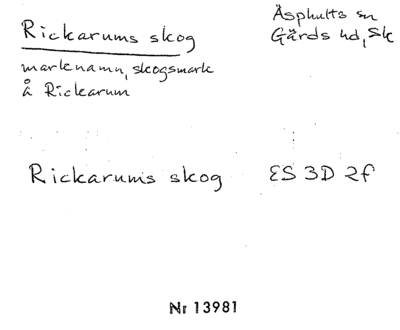 Rickarums skog
Äsphults sn
Gärds hd, Sk
marknamn, skogsmark
å Rickarum
Rickarums skog ES 3D 2f
Nr 13981